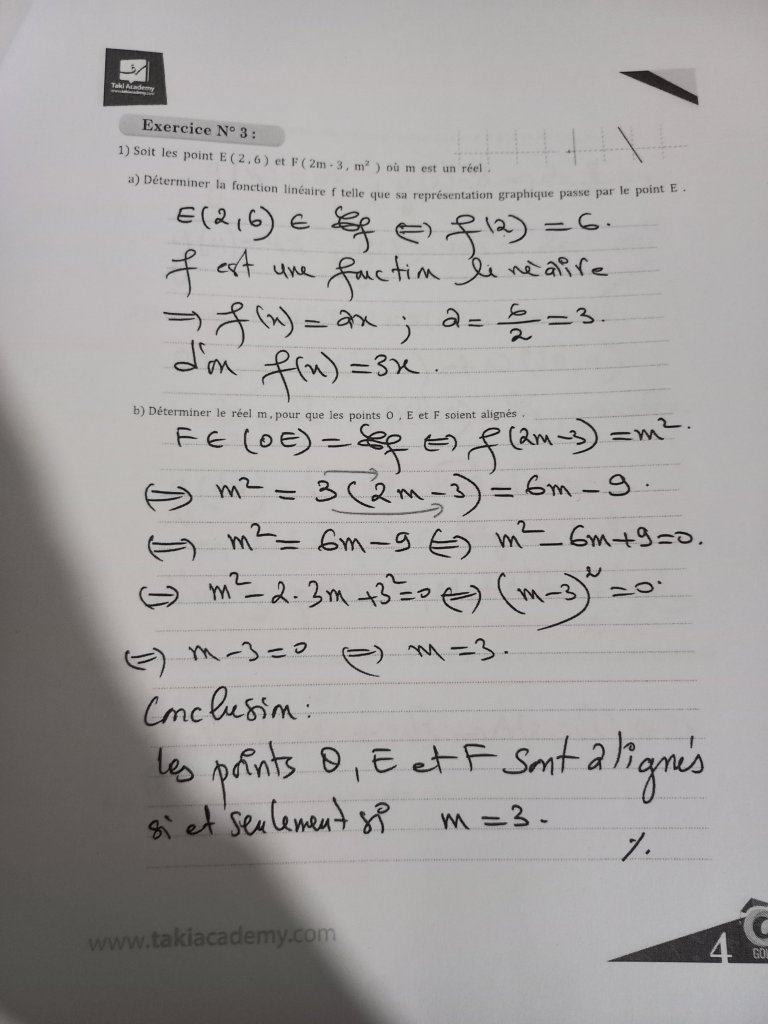 Taki Academy
www.takiacademy.com
Exercice N° 3 :
1) Soit les point E ( 2 , 6 ) et F ( 2m - 3 , m² ) où m est un réel .
a) Déterminer la fonction linéaire f telle que sa représentation graphique passe par le point E .
E(2,6) ∈ ζf ⇔ f(2) = 6.
f est une fonction linéaire
⇒ f(x) = ax ; a = 6/2 = 3.
d'où f(x) = 3x .
b) Déterminer le réel m , pour que les points O , E et F soient alignés .
F ∈ (OE) = ζf ⇔ f(2m-3) = m².
⇔ m² = 3(2m-3) = 6m - 9 .
⇔ m² = 6m - 9 ⇔ m² - 6m + 9 = 0.
⇔ m² - 2. 3m + 3² = 0 ⇔ (m-3)² = 0.
⇔ m - 3 = 0 ⇔ m = 3 .
Conclusion :
les points O , E et F sont alignés
si et seulement si m = 3 .
www.takiacademy.com
4